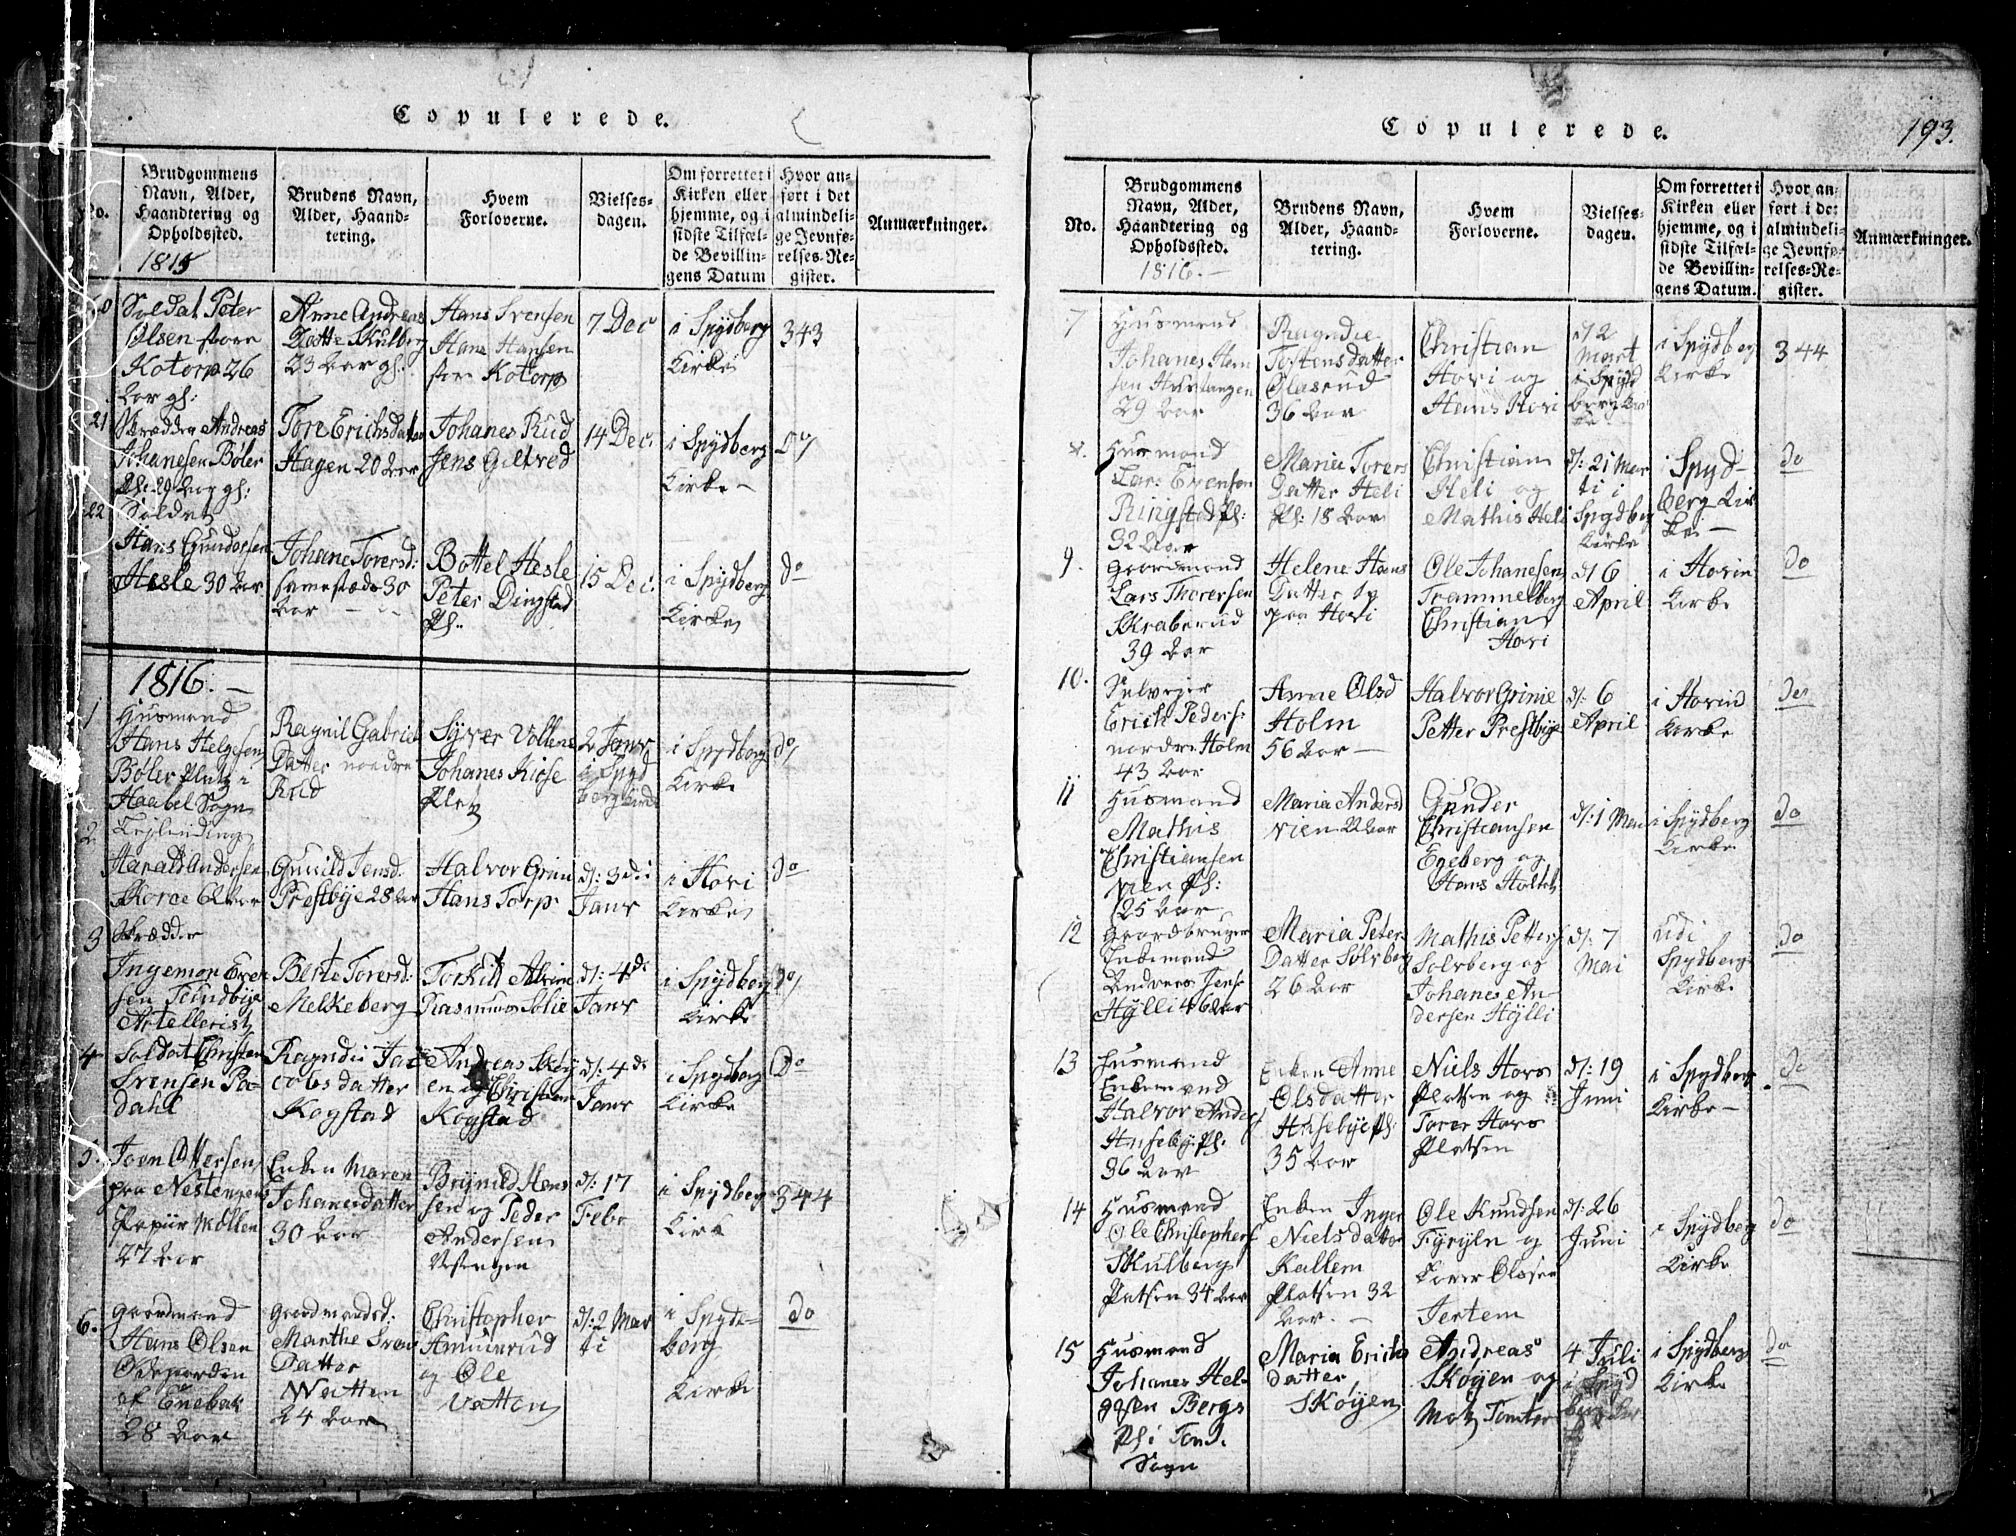 Copulerede.
No.
Brudgommens
Navn, Alder,
Haandtering og
Opholdssted.
1815
Brudens Navn,
Alder, Haand-
tering.
Hvem
Forloverne.
Vielses-
dagen.
Om forrettet i
Kirken eller
hjemme, og i
sidste Tilfæl-
de Bevillin-
gens Datum
Hvor an-
ført i det
almindeli-
ge Jevnfø-
relses-Re-
gister.
Anmærkninger.
Soldat Peter
Olsen store
Kotorp 26
Aar gl:
Anne Andreas
Datte Skulberg
23 Aar gl:
Hans Svensen
Hans Hansen
store Kotorp
7 Dec
i Spydberg
Kirke
343
21
Skrædder Andreas
Johanesen Bøler
Pl: 29 Aar gl:
Tore Erichsdatter
Hagen 20 Aar
Johanes Rud
Jens Giltved
14 Dec.
i Spydberg
Kirke
do
22
Soldat
Hans Gundersen
Hesle 30 Aar
Johane Torersd:
samestæds 30
Aar
Bottel Hesle
Peter Dingstad
Pl.
15 Dec.
i Spydberg
Kirke
do
1816.
1
Husmand
Hans Helgesen
Bøler Platz i
Haabel Sogn
Ragnil Gabriel
Datter nordre
Rud
Syver Vollene
Johanes Kiose
Platz
2 Janv
i Spyd
berg Kirke
i Spydberg
Kirke
do
2
Harald Andersen
Skorce 62 Aar
Gunild Jensd.
Prestbye 28 Aar
Halvor Grini
Hans Torp
d: 3de
Janv
i Hovi
Kirke
do
3
Skrædder
Ingemon Even
sen Tundbye
Artellerist
Berte Torersd:
Melkeberg
Torkild
Rasmus
d: 4de
Janv
i Spydberg
Kirke
do
4
Soldat Christen
Svensen
dahl
Ragndii Jac
cobsdatter
Kogstad
Andreas Skøy
en og Christian
Kogstad
d: 4de
Janv
i Spydberg
Kirke
do
5.
Joen Ottersen
paa Nestengens
Papiir Møllen
27 Aar
Enken Maren
Johanesdatter
30 Aar
Brynild Hans
sen og Peder
Andersen
d: 17
Febr
i Spydberg
Kirk
344
6.
Gaardmand
Hans Olsen
Ødegaarden
af Enebak
28 Aar
Gaardmandsd:
Marthe Sven
Datter
Watten
24 Aar
Christopher
Amundrud
og Ole
Vatten
d: 2 Mar
ti
i Spyde-
berg
Kirke
do
Copulerede.
193.
No.
Brudgommens
Navn, Alder,
Haandtering og
Opholdssted.
1816.
Brudens Navn,
Alder, Haand-
tering.
Hvem
Forloverne.
Vielses-
dagen.
Om forrettet i
Kirken eller
hjemme, og i
sidste Tilfæl-
de Bevillin-
gens Datum.
Hvor an-
ført i det
almindeli-
ge Jevnfø-
relses-Re-
gister.
Anmærkninger.
7
Husmand
Johanes Han
sen
29 Aar
Ragndie
Tostensdatter
Olasrud
36 Aar
Christian
Hovi og
Hans Hovi
d 2
Mart
i Spyd
berg Kir
ke
i Spydberg
Kirke
344
Husmand
Lars Evensen
Ringstad Pl:
32 Aar
Maria Torers
Datter Heli
Pl: 18 Aar
Christian
Heli og
Mathis Heli
d: 21 Mar
ti i
Spydberg
Kirke
i Spyd-
berg Kir
ke
do
9.
Gaardmand
Lars Thorersen
Skraberud
39 Aar
Helene Hans
Datter
paa Hovi
Ole Johanesen
Trammelberg
Christian
Hovi
d 6
April
i Hovin
Kirke
do
10.
Selvejer
Erich Peders:
nordre Holm
43 Aar
Anne Olsd
Holm
56 Aar
Halvor Grinie
Petter Prestbye
d: 6
April
i Hovin
Kirke
do
11
Husmand
Mathis
Christiansen
Nien Pl:
25 Aar
Maria Andersd
Nien 22 Aar
Gunder
Christiansen
Egeberg og
Hans Holtet
d: 1 Mai
i Spydberg
Kirke
do
12
Gaardbruger
Enkemand
Andreas Jens:
Hylli 46 Aar
Maria Peters
Datter Solberg
26 Aar
Mathis Petters
Solberg og
Johanes An
dersen Hylli
d: 7
Mai
udi
Spydberg
Kirke
do
13
Husmand
Enkemand
Halvor Anders
Huseby Pl.
36 Aar
Enken Anne
Olsdatter
Husebye Pl:
35 Aar
Niels Hovs
Platsen og
Torer Hovs
Platsen
d: 19
Juni
i Spydberg
Kirke
do
14
Husmand
Ole Christophers
Skulberg
Platsen 34 Aar
Enken Inger
Nielsdatter
Kallem
Platsen 32
Aar.
Ole Knudsen
Fyryln og
Torer Olesen
Jertem
d: 26
Juni
i Spydberg
Kirke
do
15
Husmand
Johanes Hel-
gesen Bergs
Pl i Tomt.
Sogn
Maria Erichs
datter
Skøyen
Andreas
Skøyen og
Motz Tomter
4 Juli
i Spyd
berg Kirke
i Spydberg
Kirke
do